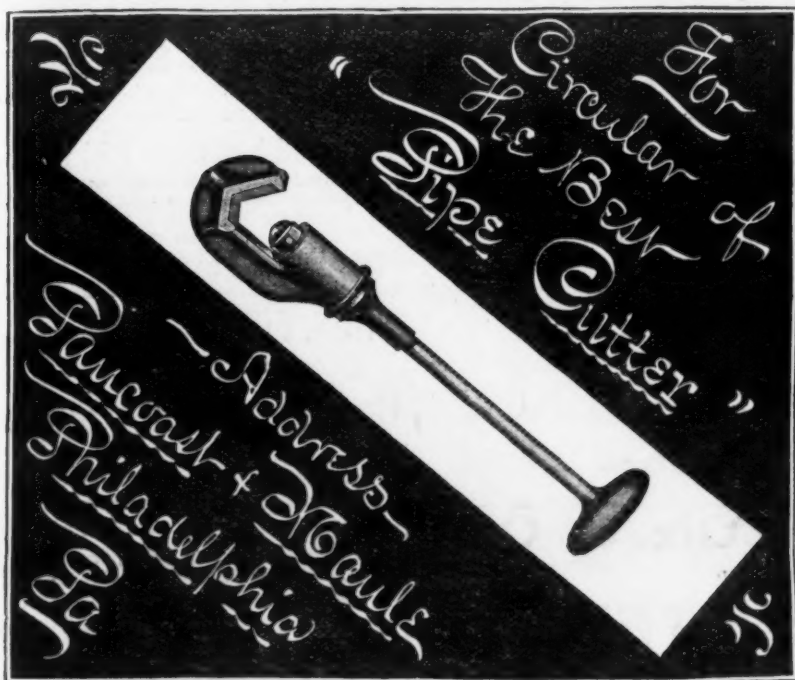 For
Circular of
The Best
"Pipe Cutter"
~Address~
Pancoast & Maule
Philadelphia
Pa